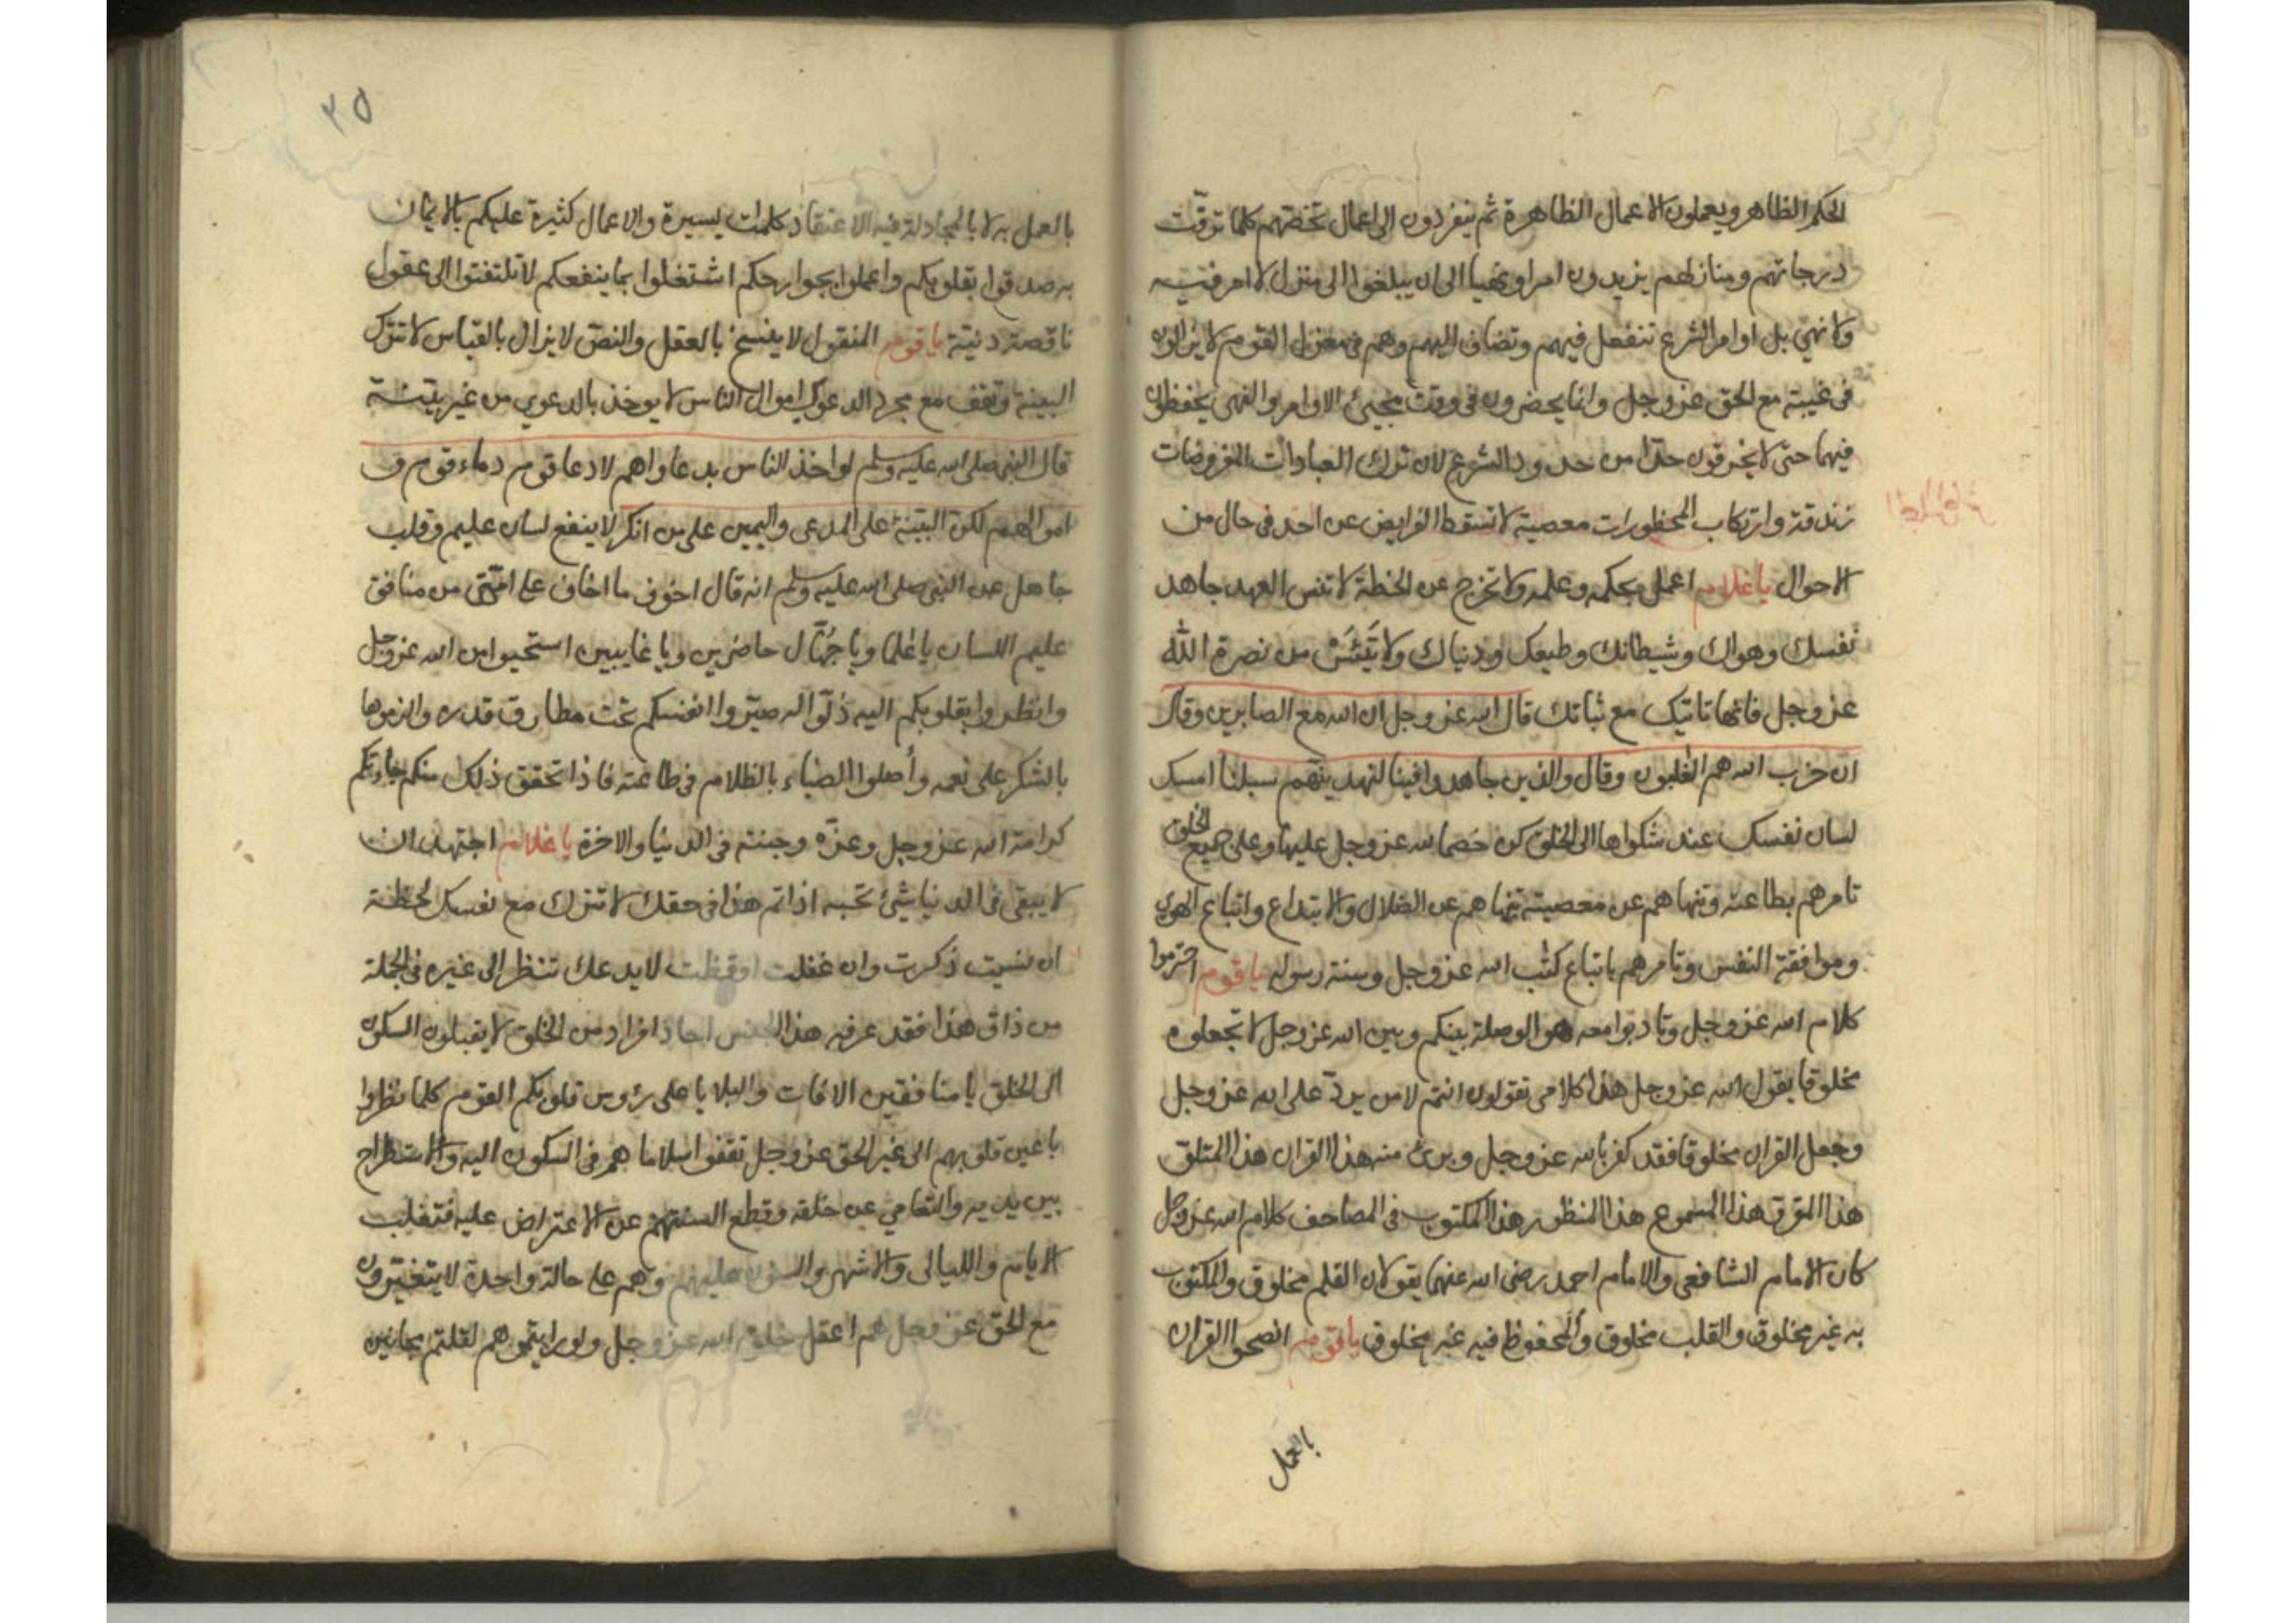 الحكم الظاهر ويعملون الاعمال الظاهرة ثم ينفردون الى اعمال تخصهم كلما ترقت
درجاتهم ومنازلهم يزيدون امرا ونهيا الى ان يبلغوا الى منزل لا امر فيه
ولا نهي بل اوامر الشرع تنفعل فيهم وتضاف اليهم وهم في معزل القوم لا يزالون
في غيبة مع الحق عز وجل وانما يحضرون في وقت مجيئ الاوامر والنهى يحفظون
فيهما حتى لا يخرقون حدا من حدود الشرع لان ترك العبادات المفروضات
زندقة وارتكاب المحظورات معصية لا تسقط الفرايض عن احد في حال من
الاحوال يا غلام اعمل بحكمه وعلمه ولا تخرج عن الخطة لا تنس العهد جاهد
نفسك وهواك وشيطانك وطبعك ودنياك ولا تَيْئَسْ من نصرة الله
عز وجل فانها تاتيك مع ثباتك قال الله عز وجل ان الله مع الصابرين وقال
ان حزب الله هم الغلبون وقال والذين جاهدوا فينا لنهدينهم سبلنا امسك
لسان نفسك عند شكواها الى الخلق كن خصما لله عز وجل عليها وعلى جميع الخلق
تامرهم بطاعته وتنهاهم عن معصيته تنهاهم عن الضلال والابتداع واتباع الهوى
وموافقة النفس وتامرهم باتباع كتب الله عز وجل وسنة رسوله يا قوم احترموا
كلام الله عز وجل وتادبوا معه هو الوصلة بينكم وبين الله عز وجل لا تجعلوه
مخلوقا يقول الله عز وجل هذا كلامى تقولون انتم لا من يرد على الله عز وجل
وجعل القران مخلوقا فقد كفر بالله عز وجل وبرئ منه هذا القران هذا المتلو
هذا المقرؤ هذا المسموع هذا المنظور هذا المكتوب في المصاحف كلام الله عز وجل
كان الامام الشافعى والامام احمد رضى الله عنهما يقولان القلم مخلوق والمكتوب
به غير مخلوق والقلب مخلوق والمحفوظ فيه غير مخلوق يا قوم انصحوا القران
بالعمل
٣٥
بالعمل به لا بالمجادلة فيه الاعتقاد كلمات يسيرة والاعمال كثيرة عليكم بالايمان
به صدقوا بقلوبكم واعملوا بجوارحكم اشتغلوا بما ينفعكم لا تلتفتوا الى عقول
ناقصة دنية يا قوم المنقول لا ينسخ بالعقل والنص لا يزال بالقياس لا تترك
البينة وتقف مع مجرد الدعوى اموال الناس لا يوخذ بالدعوي من غير بينة
قال النبي صلى الله عليه وسلم لو اخذ الناس بدعاواهم لادعا قوم دماء قوم و
اموالهم لكن البينة على المدعى واليمين على من انكر لا ينفع لسان عليم وقلب
جاهل عن النبي صلى الله عليه وسلم انه قال اخوف ما اخاف على امتى من منافق
عليم اللسان يا علما ويا جُهّال حاضرين ويا غايبين استحيوا من الله عز وجل
وانظروا بقلوبكم اليه ذلّوا له صيّروا انفسكم تحت مطارق قدره والزموها
بالشكر على نعمه وأصلوا الضياء بالظلام في طاعته فاذا تحقق ذلك منكم جاءتكم
كرامة الله عز وجل وعزه وجنته في الدنيا والاخرة يا غلام اجتهد ان
لا يبقى في الدنيا شيئ تحبه اذا تم هذا في حقك لا تترك مع نفسك لحظة
ان نسيت ذكرت وان غفلت اوقظت لا يدعك تنظر الى غيره في الجملة
من ذاق هذا فقد عرفه هذا الجنس احاد افراد من الخلق لا يقبلون السكون
الى الخلق يا منافقين الافات والبلايا على رؤوس قلوبكم القوم كلما نظروا
باعين قلوبهم الى غير الحق عز وجل هم في السكون اليه والاستطراح
بين يديه والتعامي عن خلقه وقطع السنتهم عن الاعتراض عليه فتغلب
الايام والليالى والاشهر والسنون عليهم وهم على حالة واحدة لا يتغيرون
مع الحق عز وجل هم اعقل خلق الله عز وجل ولو رايتموهم لقلتم مجانين